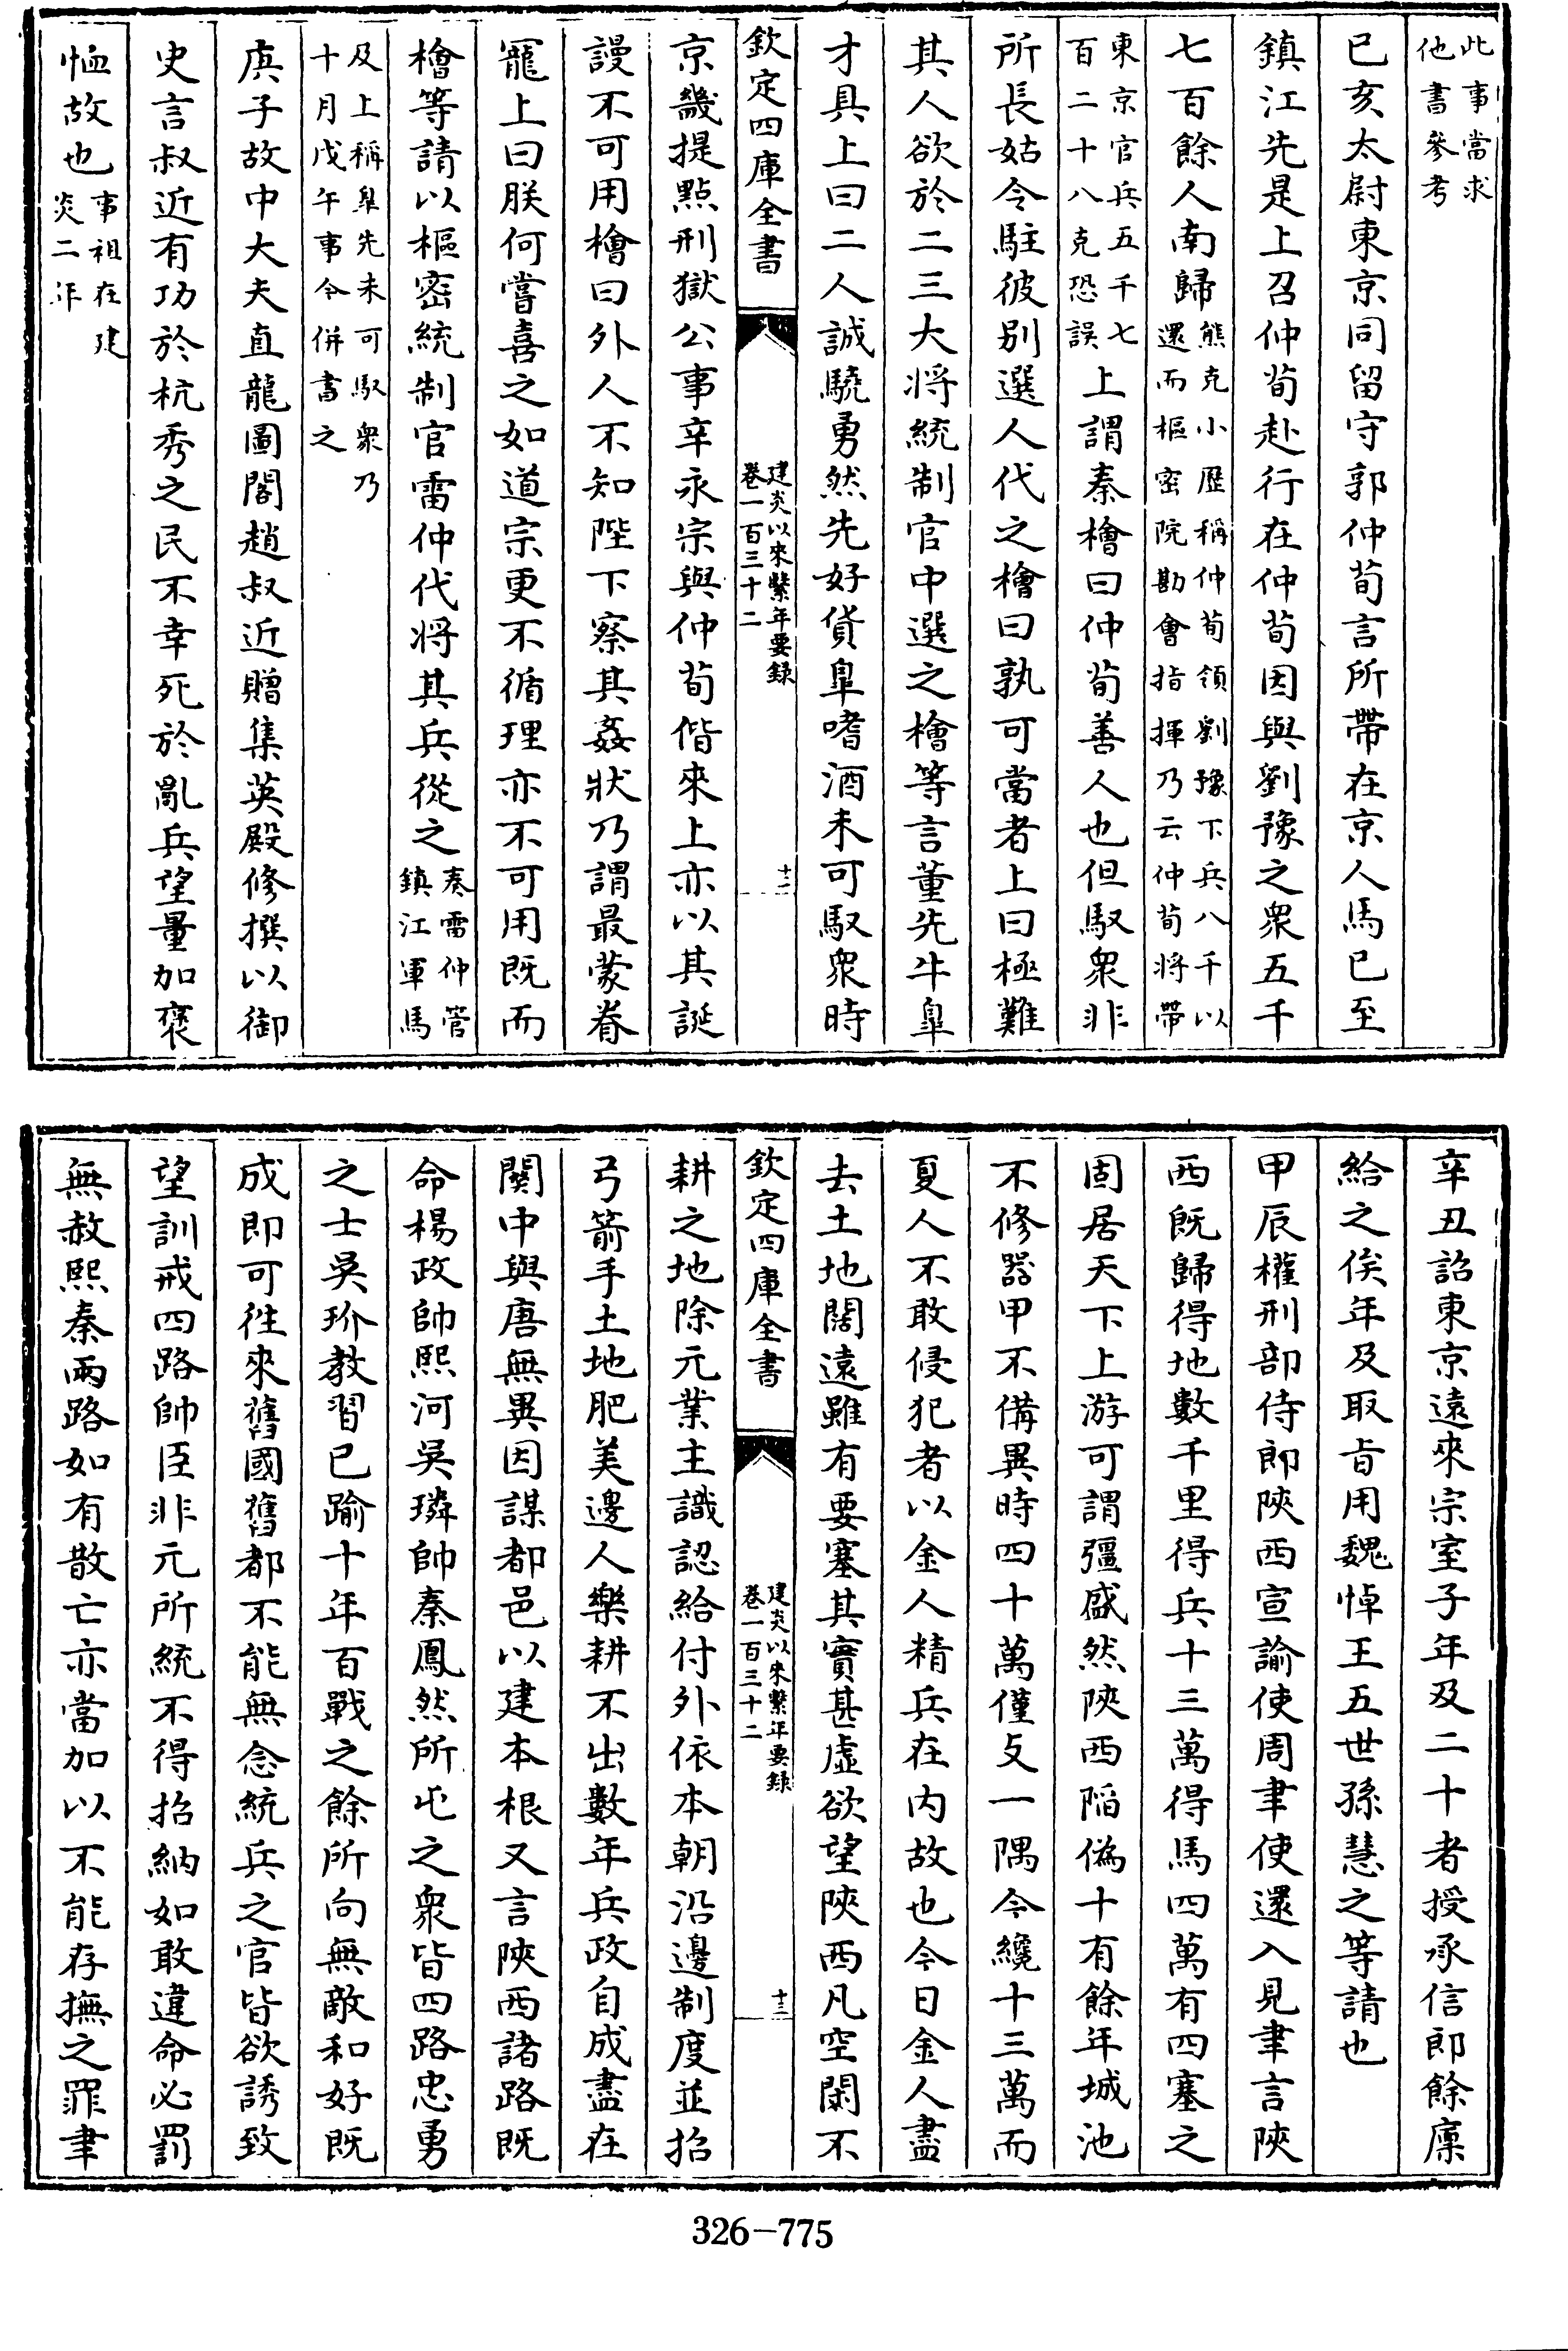 此事當求
他書參考
已亥太尉東京同留守郭仲荀言所帶在京人馬已至
鎮江先是上召仲荀赴行在仲荀因與劉豫之衆五千
七百餘人南歸熊克小歴稱仲荀領劉豫下兵八千以
還而樞密院勘會指揮乃云仲荀將帶
東京官兵五千七
百二十八克恐誤上謂秦檜曰仲荀善人也但馭衆非
所長姑令駐彼别選人代之檜曰孰可當者上曰極難
其人欲於二三大將統制官中選之檜等言董先牛臯
才具上曰二人誠驍勇然先好貨臯嗜酒未可馭衆時
欽定四庫全書
建炎以來繫年要録
卷一百三十二
十二
京畿提點刑獄公事辛永宗與仲荀偕來上亦以其誕
謾不可用檜曰外人不知陛下察其姦狀乃謂最蒙眷
寵上曰朕何嘗喜之如道宗更不循理亦不可用既而
檜等請以樞密統制官雷仲代將其兵從之奏雷仲管
鎮江軍馬
及上稱臯先未可馭衆乃
十月戊午事今併書之
庚子故中大夫直龍圖閣趙叔近贈集英殿修撰以御
史言叔近有功於杭秀之民不幸死於亂兵望量加褒
恤故也事祖在建
炎二年
辛丑詔東京遠來宗室子年及二十者授承信郎餘廩
給之俟年及取㫖用魏悼王五世孫慧之等請也
甲辰權刑部侍郎陝西宣諭使周聿使還入見聿言陝
西既歸得地數千里得兵十三萬得馬四萬有四塞之
固居天下上游可謂彊盛然陝西陷偽十有餘年城池
不修器甲不備異時四十萬僅支一隅今纔十三萬而
夏人不敢侵犯者以金人精兵在内故也今日金人盡
去土地闊遠雖有要塞其實甚虚欲望陝西凡空閑不
欽定四庫全書
建炎以來繫年要録
卷一百三十二
十三
耕之地除元業主識認給付外依本朝沿邊制度並招
弓箭手土地肥美邊人樂耕不出數年兵政自成盡在
關中與唐無異因謀都邑以建本根又言陝西諸路既
命楊政帥熙河吳璘帥秦鳳然所屯之衆皆四路忠勇
之士吳玠教習已踰十年百戰之餘所向無敵和好既
成即可徃來舊國舊都不能無念統兵之官皆欲誘致
望訓戒四路帥臣非元所統不得招納如敢違命必罰
無赦熙秦兩路如有散亡亦當加以不能存撫之罪聿
326-775